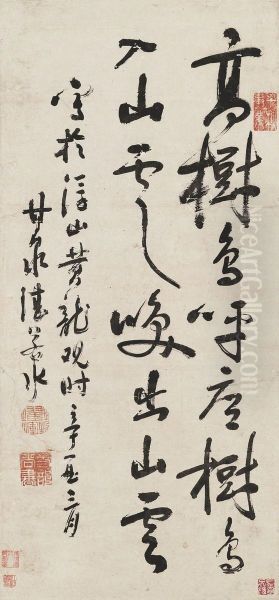 高樹鳥呼底樹鳥
入山雲喚出山雲
寫於浮山黃龍觀時辛丑三月
甘泉湛若水